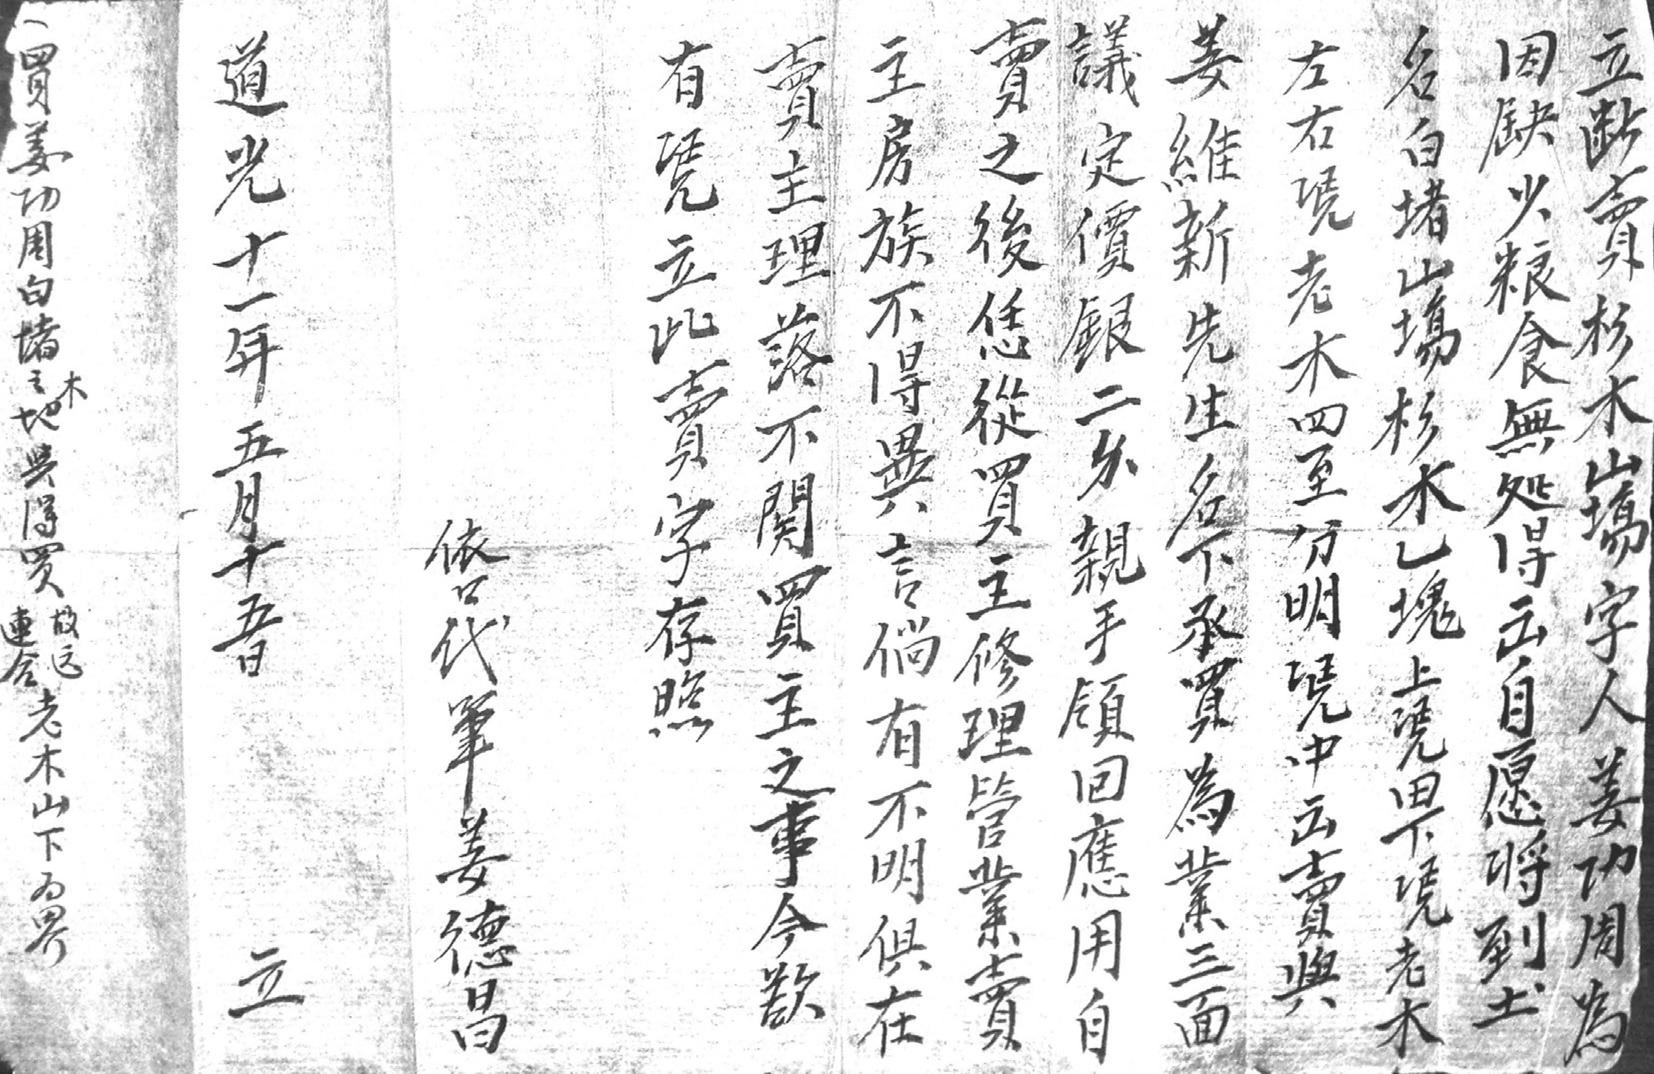 立断賣杉木山塲字人姜功周為
因缺少粮食無処得出自愿將到土
名白堵山塲杉木乙塊上凴田下凴老木
左右凴老木四至分明凴中出賣與
姜維新先生名下承買為業三面
議定價銀二分親手領回應用自
賣之後恁從買主修理管業賣
主房族不得異言倘有不明俱在
賣主理落不関買主之事今欲
有凴立此賣字存照
依口代筆姜德昌
道光十一年五月十五日 立
買姜功周白堵之木地
得買
連合老木山下為界